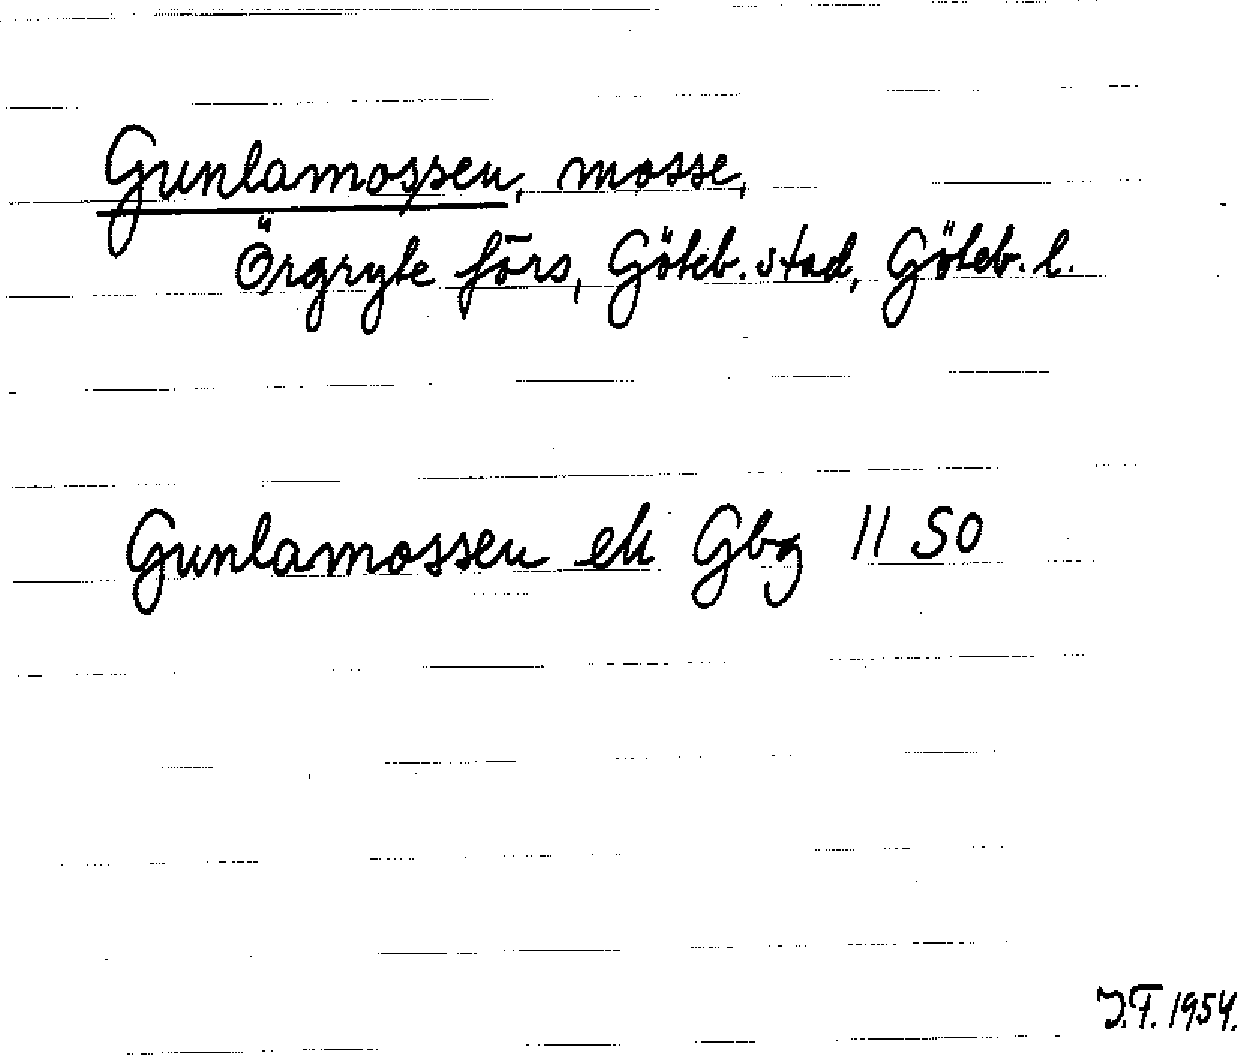 Gunlamossen, mosse,
Örgryte förs, Göteb. stad, Göteb. l.
Gunlamossen ek Gbg 11 SO
J.F. 1954.